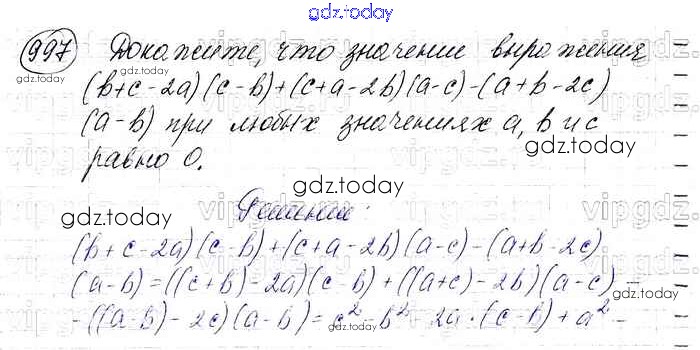 gdz.today
997 Докажите, что значение выражения
(b+c-2a)(c-b)+(c+a-2b)(a-c)-(a+b-2c)
(a-b) при любых значениях a, b и c
равно 0.
gdz.today
Решение:
gdz.today
(b+c-2a)(c-b)+(c+a-2b)(a-c)-(a+b-2c)
(a-b)=((c+b)-2a)(c-b)+((a+c)-2b)(a-c)-
-((a-b)-2c)(a-b)=c²-b²-2a·(c-b)+a²-
gdz.today